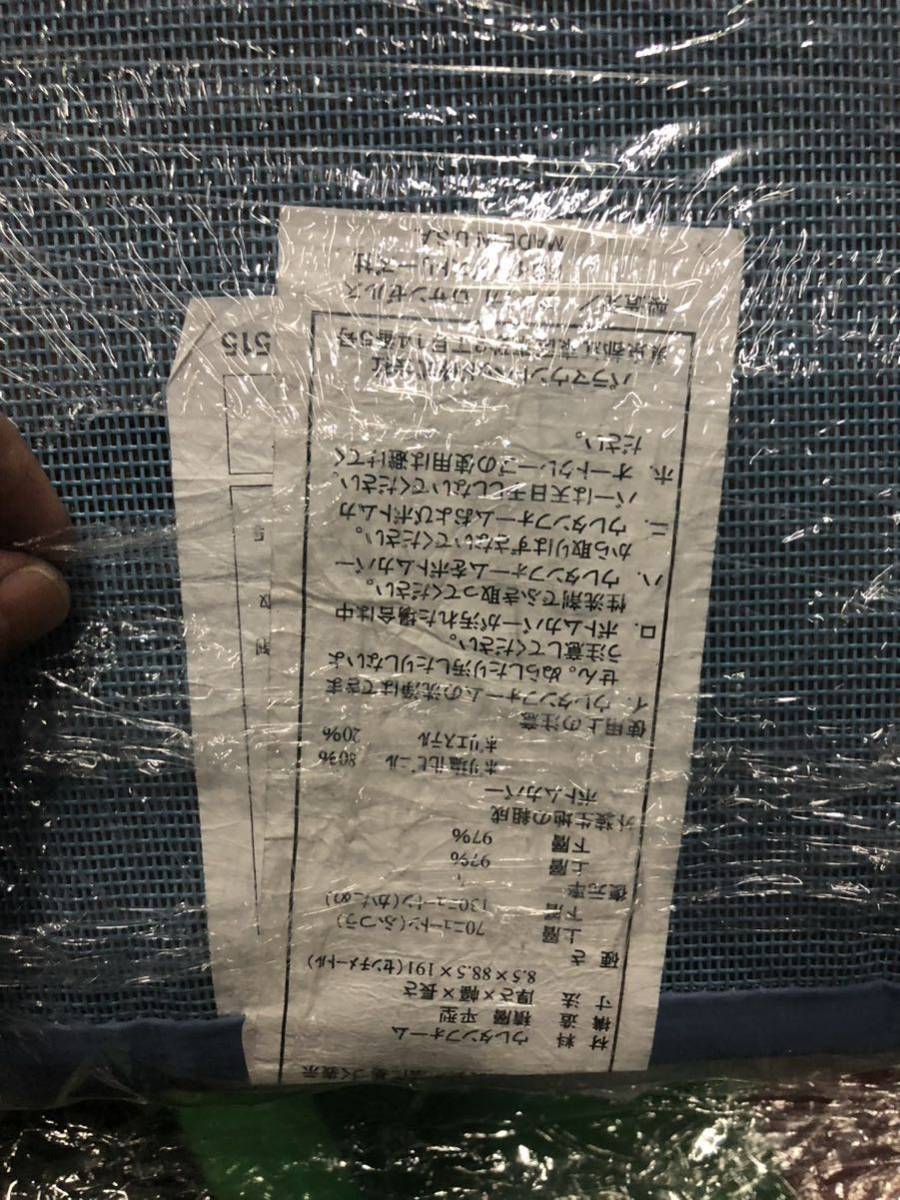 に基づく表示
材 料 ウレタンフォーム
構 造 積層 平型
寸 法 厚さ×幅×長さ
8.5×88.5×191(センチメートル)
硬 さ
上層 70ニュートン(ふつう)
下層 130ニュートン(かため)
復元率
上層 97%
下層 97%
外装生地の組成
ボトムカバー
ポリ塩化ビニール 80%
ポリエステル 20%
使用上の注意
イ. ウレタンフォームの洗浄はできま
せん。ぬらしたり汚したりしないよ
う注意してください。
ロ. ボトムカバーが汚れた場合は中
性洗剤でふき取ってください。
ハ. ウレタンフォームをボトムカバー
から取りはずさないでください。
ニ. ウレタンフォームおよびボトムカ
バーは天日干ししないでください
ホ. オートクレーブの使用は避けてく
ださい。
パラマウントベッド株式会社
東京都江東区東砂2丁目14番5号
ロサンゼルス
MADE IN U.S.A.
515